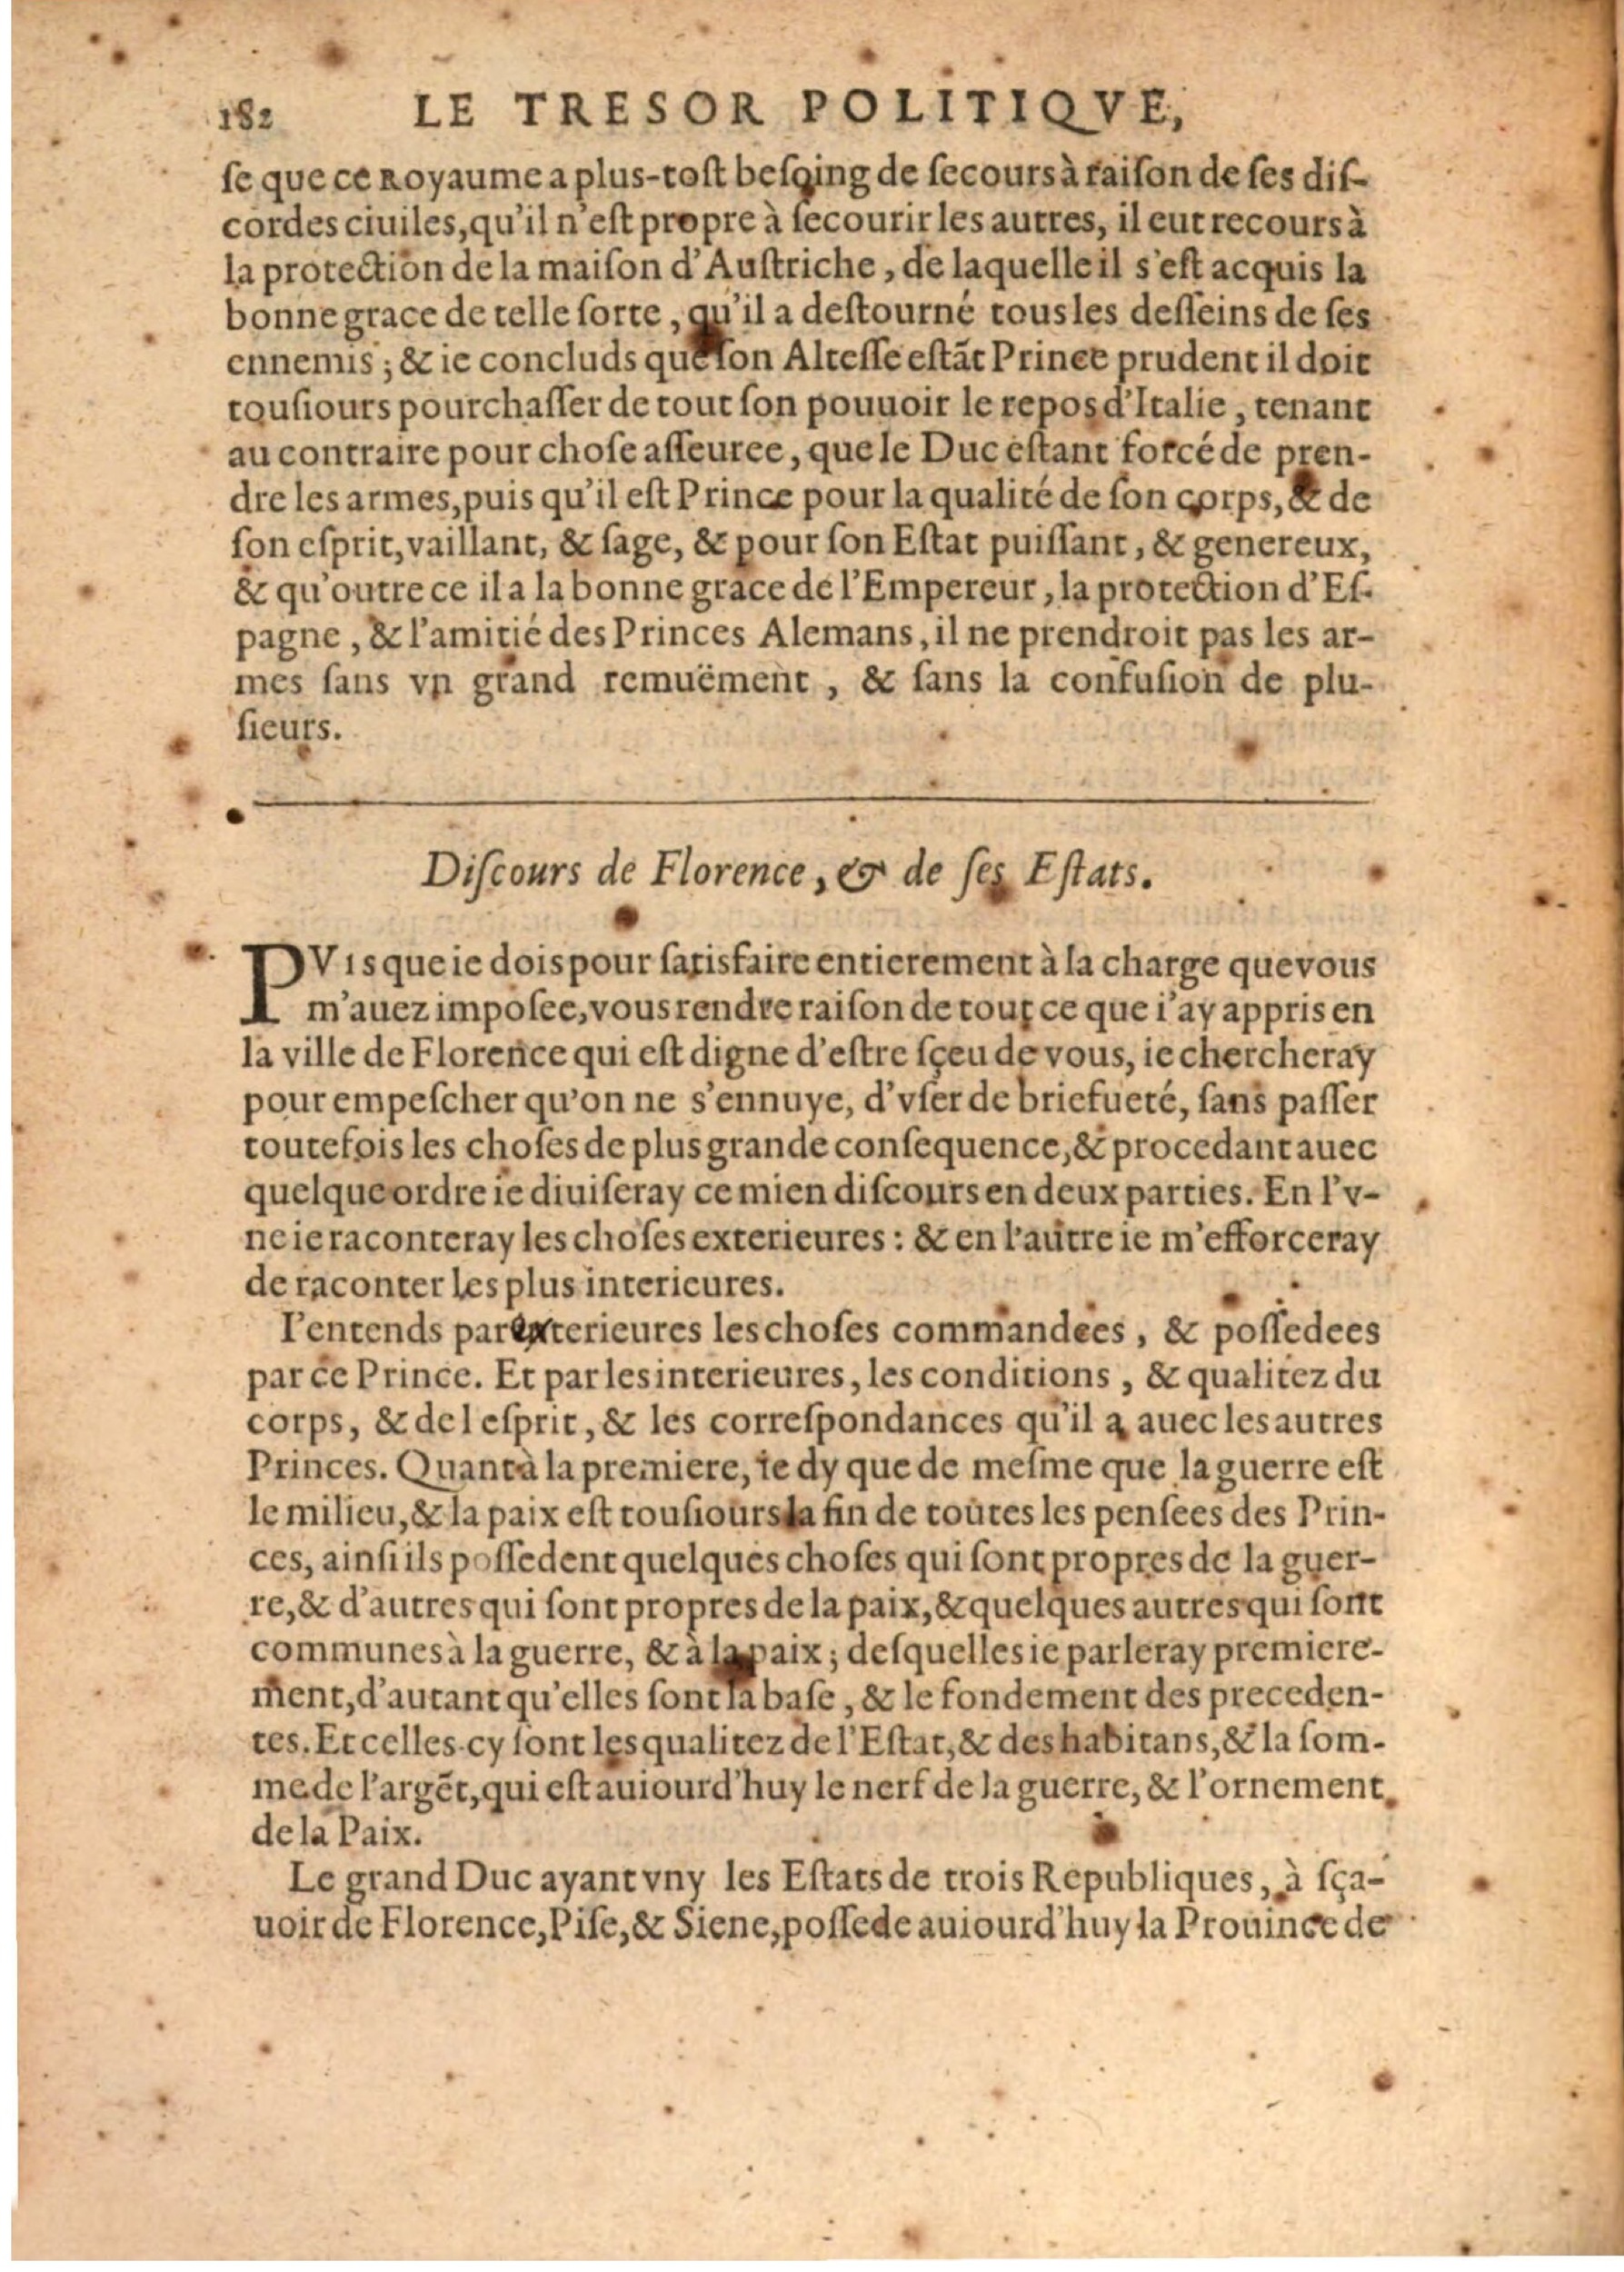 182 LE TRESOR POLITIQVE,
ſe que ce Royaume a plus-toſt beſoing de ſecours à raiſon de ſes diſ-
cordes ciuiles, qu'il n'eſt propre à ſecourir les autres, il eut recours à
la protection de la maiſon d'Auſtriche, de laquelle il s'eſt acquis la
bonne grace de telle ſorte, qu'il a deſtourné tous les deſſeins de ſes
ennemis; & ie concluds que ſon Alteſſe eſtãt Prince prudent il doit
touſiours pourchaſſer de tout ſon pouuoir le repos d'Italie, tenant
au contraire pour choſe aſſeuree, que le Duc eſtant forcé de pren-
dre les armes, puis qu'il eſt Prince pour la qualité de ſon corps, & de
ſon eſprit, vaillant, & ſage, & pour ſon Eſtat puiſſant, & genereux,
& qu'outre ce il a la bonne grace de l'Empereur, la protection d'Eſ-
pagne, & l'amitié des Princes Alemans, il ne prendroit pas les ar-
mes ſans vn grand remuëment, & ſans la confuſion de plu-
ſieurs.
Diſcours de Florence, & de ſes Eſtats.
PVis que ie dois pour ſatisfaire entierement à la charge que vous
m'auez impoſee, vous rendre raiſon de tout ce que i'ay appris en
la ville de Florence qui eſt digne d'eſtre ſçeu de vous, ie chercheray
pour empeſcher qu'on ne s'ennuye, d'vſer de briefueté, ſans paſſer
toutefois les choſes de plus grande conſequence, & procedant auec
quelque ordre ie diuiſeray ce mien diſcours en deux parties. En l'v-
ne ie raconteray les choſes exterieures: & en l'autre ie m'efforceray
de raconter les plus interieures.
I'entends par exterieures les choſes commandées, & poſſedees
par ce Prince. Et par les interieures, les conditions, & qualitez du
corps, & de l eſprit, & les correſpondances qu'il a auec les autres
Princes. Quant à la premiere, ie dy que de meſme que la guerre eſt
le milieu, & la paix eſt touſiours la fin de toutes les penſées des Prin-
ces, ainſi ils poſſedent quelques choſes qui ſont propres de la guer-
re, & d'autres qui ſont propres de la paix, & quelques autres qui ſont
communes à la guerre, & à la paix; deſquelles ie parleray premiere-
ment, d'autant qu'elles ſont la baſe, & le fondement des preceden-
tes. Et celles-cy ſont les qualitez de l'Eſtat, & des habitans, & la ſom-
me de l'argẽt, qui eſt auiourd'huy le nerf de la guerre, & l'ornement
de la Paix.
Le grand Duc ayant vny les Eſtats de trois Republiques, à ſça-
uoir de Florence, Piſe, & Siene, poſſede auiourd'huy la Prouince de